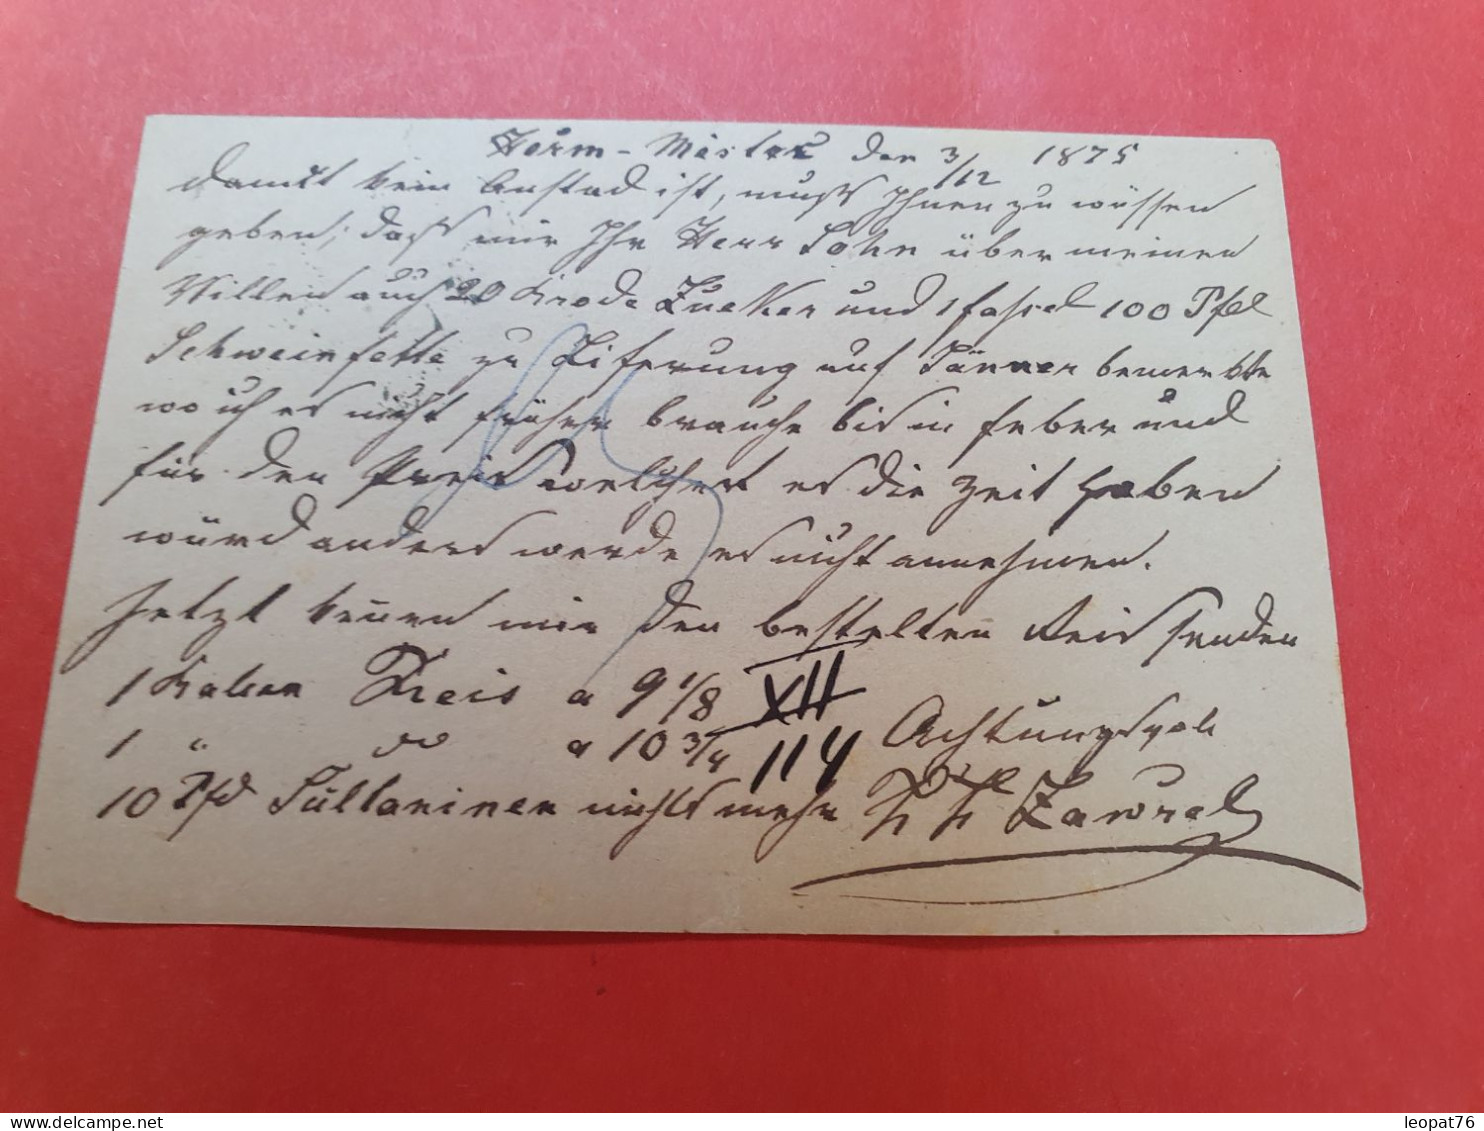 Herm-Mistec den 3/12 1875
damit kein Anstad ist, muß Ihnen zu wissen
geben, daß mir Ihr Herr Sohn über meinen
Willen auch 20 Brode Zucker und 1 fassel 100 Pfd
Schweinfette zu Liferung auf Jänner bemerkte
wo ich es nicht früher brauche bis in feber und
für den Preis welchen er die Zeit haben
würd anders werde es nicht annehmen.
Jetzt kennen mir den bestellten Reis senden
1 Ballen Reis a 9 1/8 XII
1 " do a 10 3/4 114 Achtungsvoll
10 Pfd Sultaninen nichts mehr Zawrel
leopat76